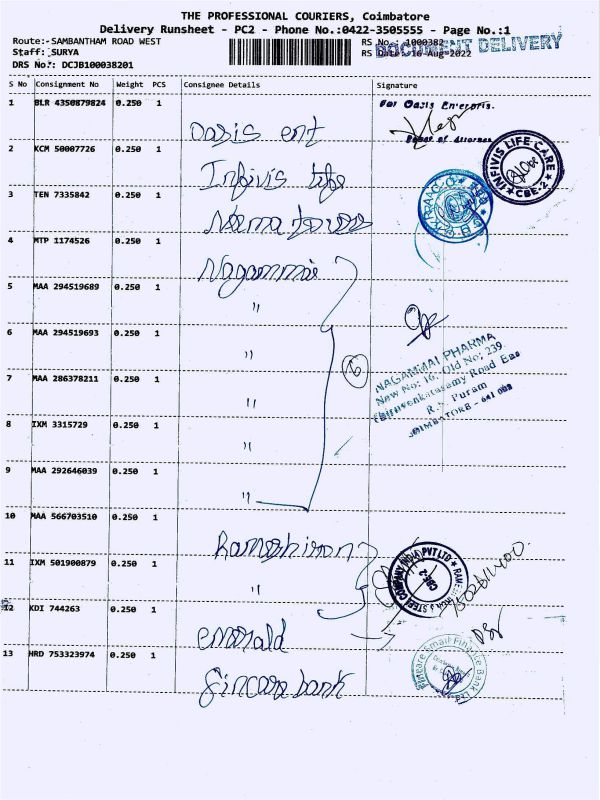 THE PROFESSIONAL COURIERS, Coimbatore
Delivery Runsheet - PC2 - Phone No.:0422-3505555 - Page No.:1
Route:- SAMBANTHAM ROAD WEST RS No.: 1000382
Staff: SURYA RS Date: 16-Aug-2022
DOCUMENT DELIVERY
DRS No.: DCJB100038201
S No Consignment No Weight PCS Consignee Details Signature
1 BLR 4350879824 0.250 1
For Oasis Enterpris.
Oasis ent
2 KCM 50007726 0.250 1
INFIVIS LIFE CARE
CBE-2
Infivis life
3 TEN 7335842 0.250 1
Neema towers
4 MTP 1174526 0.250 1
Nagammai
5 MAA 294519689 0.250 1
"
6 MAA 294519693 0.250 1
"
6
NAGAMMAI PHARMA
New No: 16, Old No: 239.
Thiruvenkatasamy Road Eas
R.S. Puram
COIMBATORE - 641 002
7 MAA 286378211 0.250 1
"
8 IXM 3315729 0.250 1
"
9 MAA 292646039 0.250 1
"
10 MAA 566703510 0.250 1
Ramesh iron
11 IXM 501900879 0.250 1
"
RAMESH IRON & STEEL COMPANY INDIA PVT LTD
CBE-2
12 KDI 744263 0.250 1
emerald
13 HRD 753323974 0.250 1
Fincare Small Finance Bank Ltd
Fincare bank